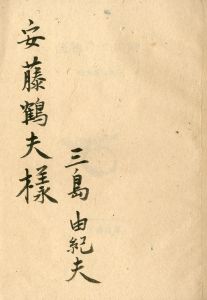 安藤鶴夫様
三島由紀夫